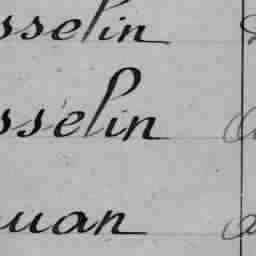 sselin
sselin
uan